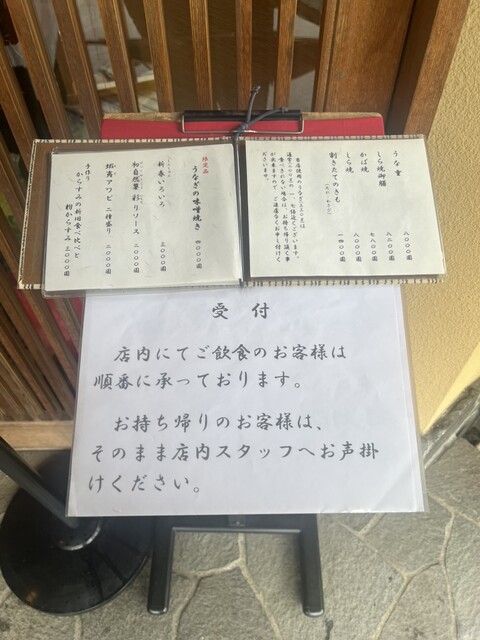 うな重 八〇〇〇円
しら焼御膳 八二〇〇円
かば焼 七八〇〇円
しら焼 八〇〇〇円
割きたてのきも 一四〇〇円
限定品
うなぎの味噌焼き 四〇〇〇円
新春いろいろ 三〇〇〇円
和自然薯 彩りソース 二〇〇〇円
蝦夷アワビ二種盛り 二〇〇〇円
手作り
からすみの新旧食べ比べと
粉からすみ 三〇〇〇円
受付
店内にてご飲食のお客様は
順番に承っております。
お持ち帰りのお客様は、
そのまま店内スタッフへお声掛
けください。